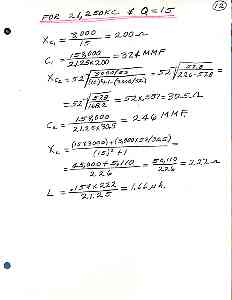 12
FOR 21,250KC & Q=15
Xc₁ = 3,000/15 = 200Ω
C₁ = 159,000/21.25x200 = 37.4 MMF
Xc₂ = 52√(3000/52)/((15)²+1-(3000/52)) = 52√57.8/(226-57.8) =
= 52√57.8/168.2 = 52x.59 = 30.5Ω
C₂ = 159,000/21.25x30.5 = 246 MMF
X_L = (15x3000)+(3,000x52/30.5)/((15)²+1) =
= 45,000+5,110/226 = 50,110/226 = 222Ω
L = .159x222/21.25 = 1.66 μh.